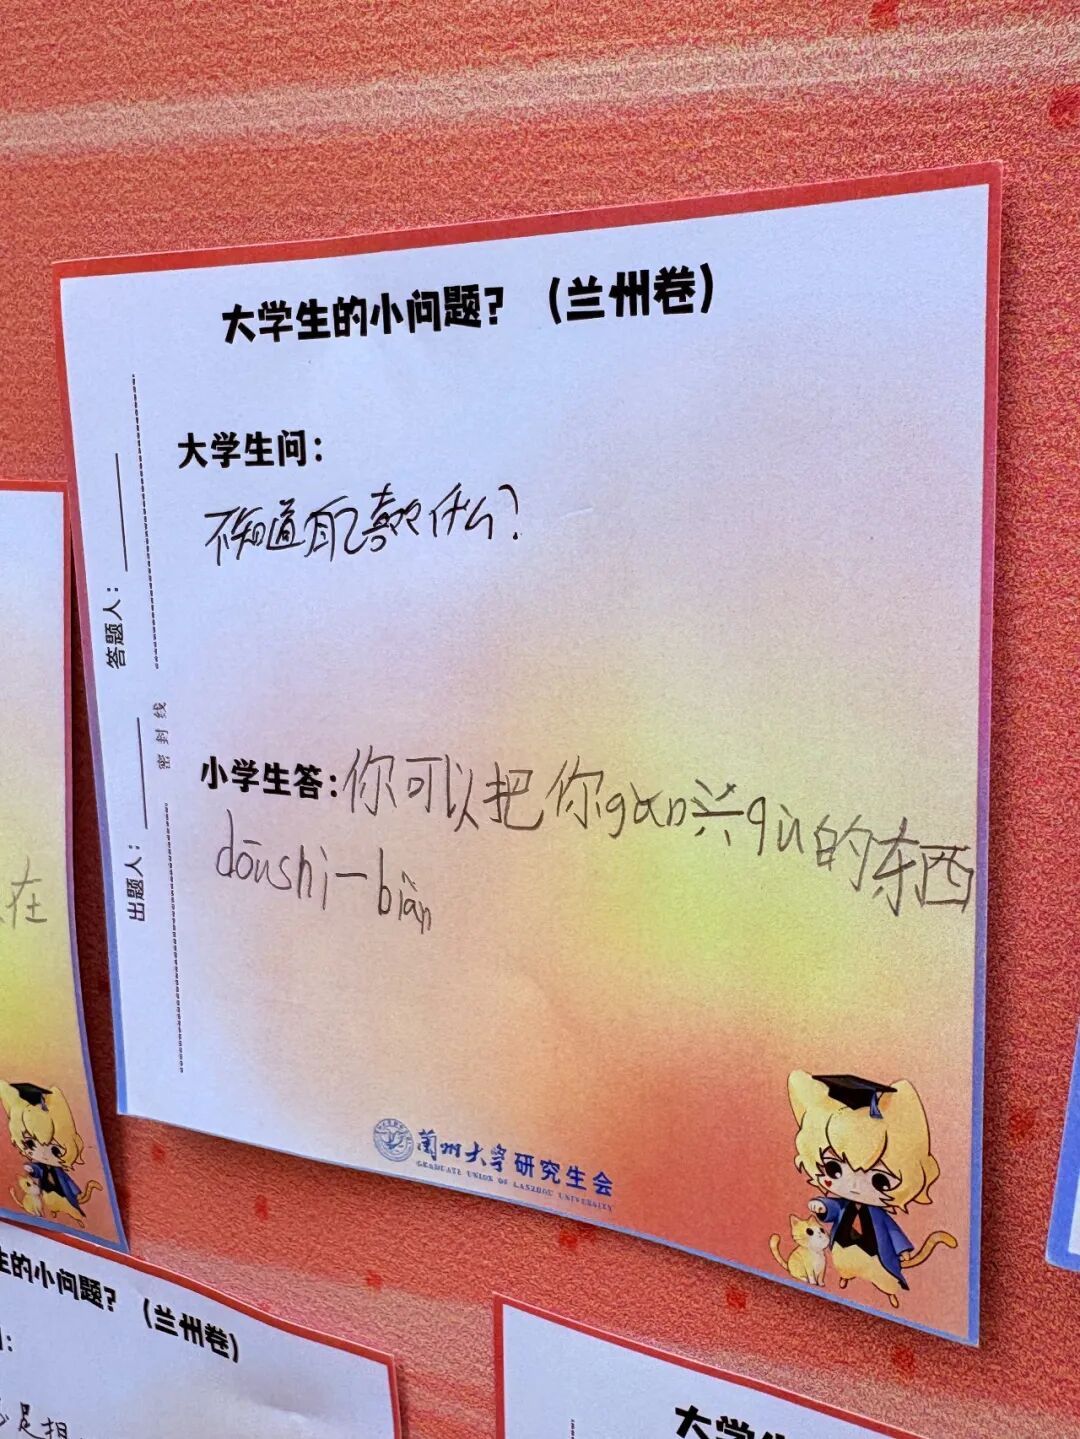 大学生的小问题？（兰州卷）
大学生问：
不知道自己喜欢什么？
小学生答：你可以把你gǎn兴qù的东西
dōushì一biàn
答题人：
密封线
出题人：
兰州大学研究生会
GRADUATE UNION OF LANZHOU UNIVERSITY
在
生的小问题？（兰州卷）
大学生